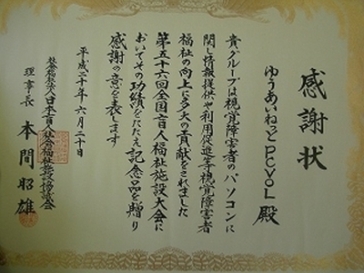 感謝状
ゆうあいねっとPCVOL殿
貴グループは視覚障害者のパソコンに
関し情報提供や利用促進等視覚障害者
福祉の向上に多大の貢献をされました
第五十六回全国盲人福祉施設大会に
おいてその功績をたたえ記念品を贈り
感謝の意を表します
平成二十年六月二十日
社会福祉法人日本盲人社会福祉施設協議会
理事長 本間昭雄